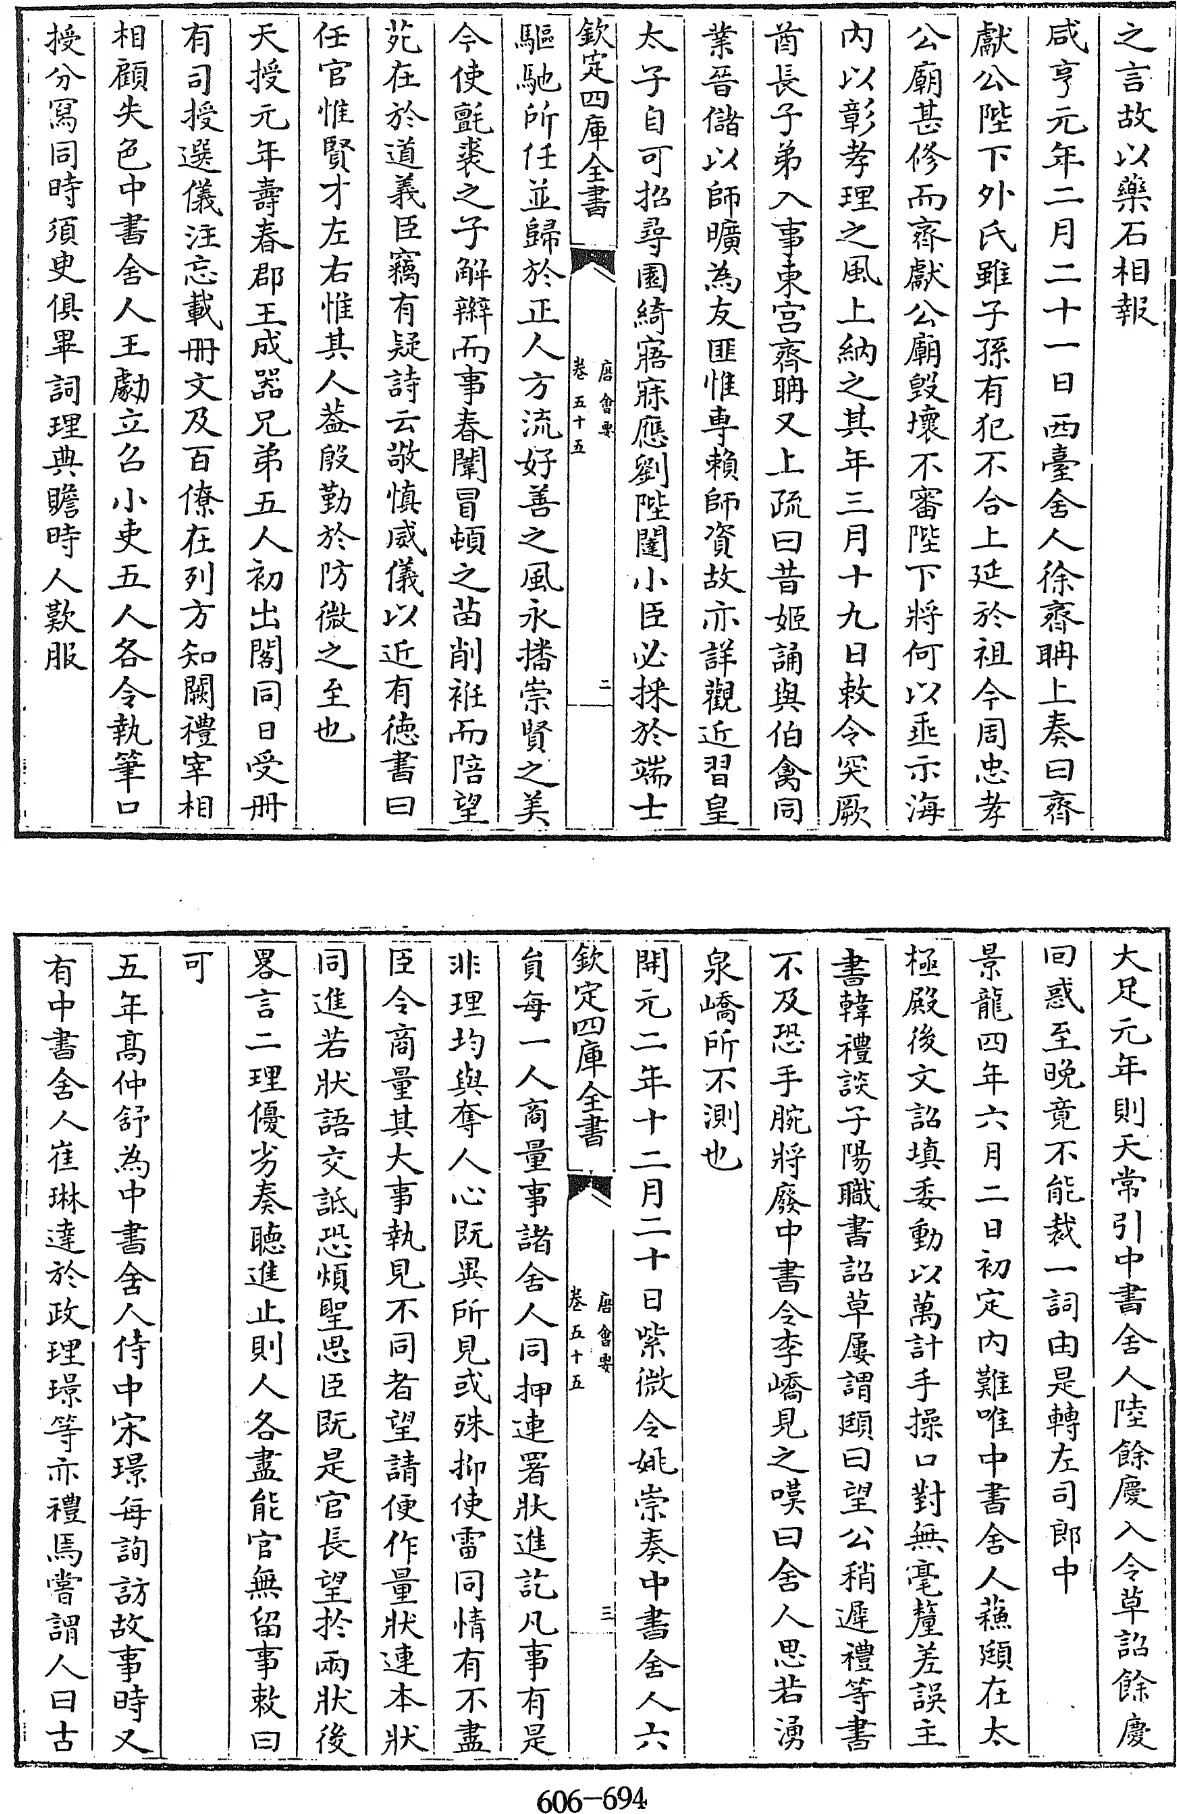 之言故以藥石相報
咸亨元年二月二十一日西臺舍人徐齊聃上奏曰齊
獻公陛下外氏雖子孫有犯不合上延於祖今周忠孝
公廟甚修而齊獻公廟毀壞不審陛下將何以垂示海
內以彰孝理之風上納之其年三月十九日敕令突厥
酋長子弟入事東宫齊聃又上疏曰昔姬誦與伯禽同
業晉儲以師曠為友匪惟専賴師資故亦詳觀近習皇
太子自可招尋園綺寤寐應劉陛闥小臣必採於端士
欽定四庫全書
唐會要
卷五十五
二
驅馳所任並歸於正人方流好善之風永播崇賢之美
今使氊裘之子解辮而事春闈冒頓之苗削袵而陪望
苑在於道義臣竊有疑詩云敬慎威儀以近有徳書曰
任官惟賢才左右惟其人葢殷勤於防微之至也
天授元年壽春郡王成器兄弟五人初出閤同日受冊
有司授選儀注忘載冊文及百僚在列方知闕禮宰相
相顧失色中書舍人王勮立召小吏五人各令執筆口
授分寫同時須臾俱畢詞理典贍時人歎服
大足元年則天常引中書舍人陸餘慶入令草詔餘慶
回惑至晚竟不能裁一詞由是轉左司郎中
景龍四年六月二日初定内難唯中書舍人蘓頲在太
極殿後文詔填委動以萬計手操口對無毫釐差誤主
書韓禮談子陽職書詔草屢謂頲曰望公稍遲禮等書
不及恐手腕將廢中書令李嶠見之嘆曰舍人思若湧
泉嶠所不測也
開元二年十二月二十日紫微令姚崇奏中書舍人六
欽定四庫全書
唐會要
卷五十五
三
員每一人商量事諸舍人同押連署狀進訖凡事有是
非理均與奪人心既異所見或殊抑使雷同情有不盡
臣令商量其大事執見不同者望請便作量狀連本狀
同進若狀語交詆恐煩聖思臣既是官長望於兩狀後
畧言二理優劣奏聽進止則人各盡能官無留事敕曰
可
五年髙仲舒為中書舍人侍中宋璟每詢訪故事時又
有中書舍人崔琳達於政理璟等亦禮焉嘗謂人曰古
606-694